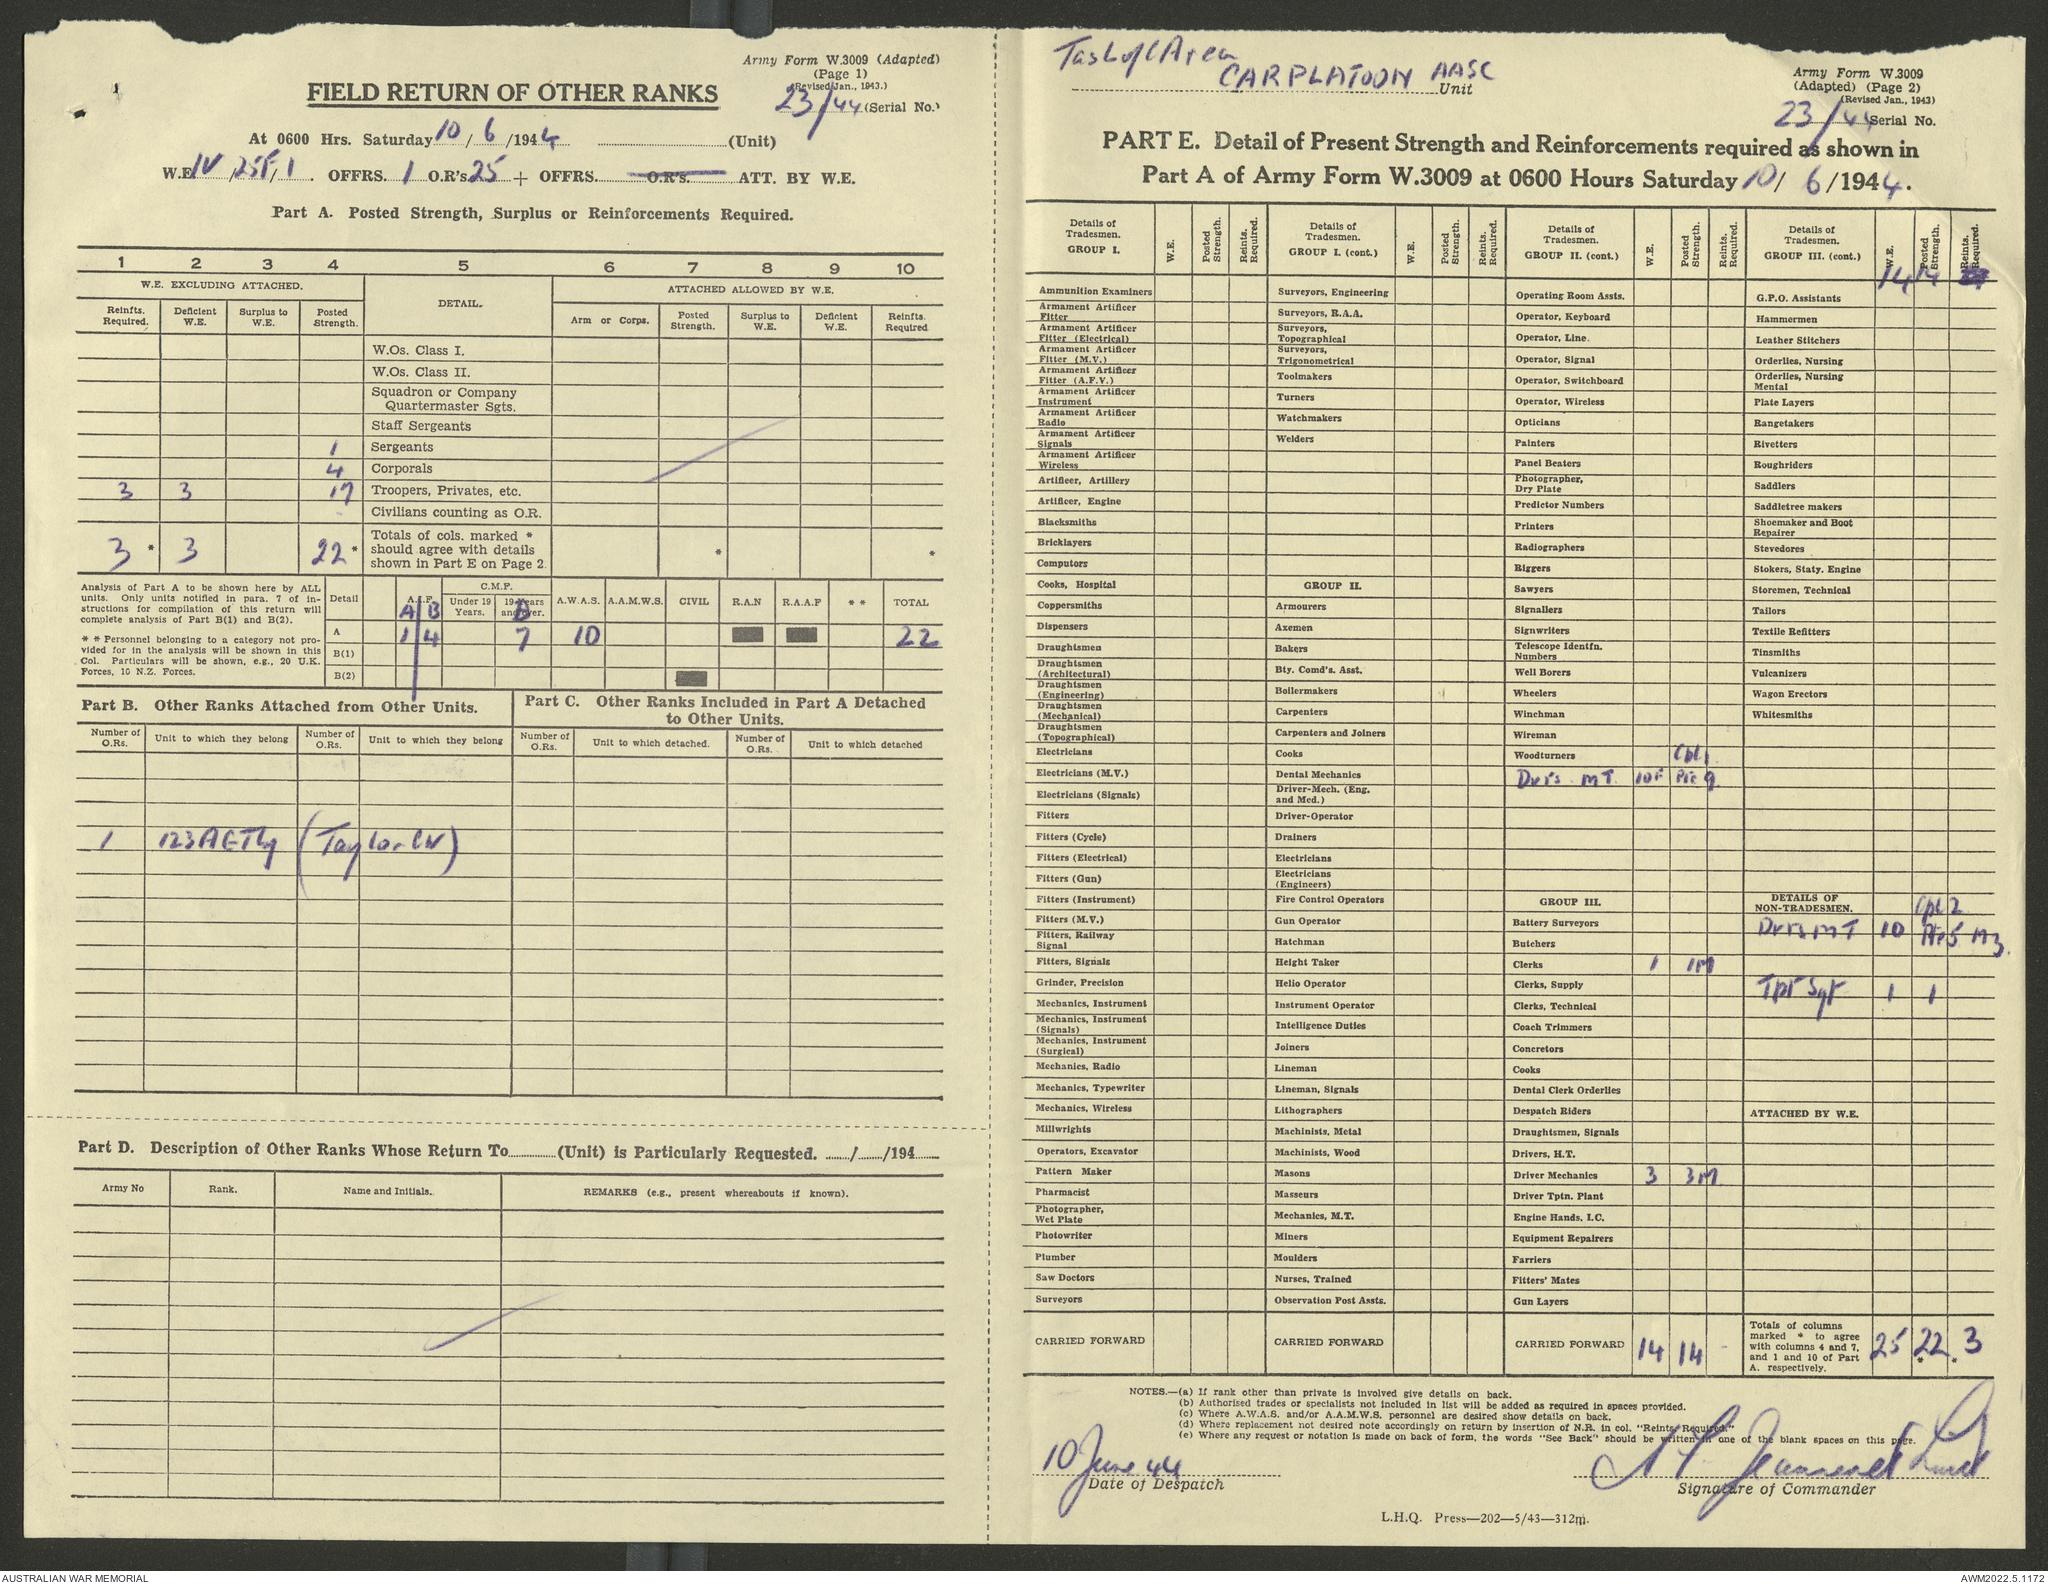 Army Form W.3009 (Adapted)
(Page 1)
(Revised Jan., 1943.)
FIELD RETURN OF OTHER RANKS
23/44 (Serial No.)
At 0600 Hrs. Saturday 10/6/1944 (Unit)
W.E. IV/25F/1. OFFRS. 1 O.R's. 25 + OFFRS. O.R's. ATT. BY W.E.
Part A. Posted Strength, Surplus or Reinforcements Required.
1 2 3 4 5 6 7 8 9 10
W.E. EXCLUDING ATTACHED. DETAIL. ATTACHED ALLOWED BY W.E.
Reinfts. Required. Deficient W.E. Surplus to W.E. Posted Strength. Arm or Corps. Posted Strength. Surplus to W.E. Deficient W.E. Reinfts. Required
W.Os. Class I.
W.Os. Class II.
Squadron or Company
Quartermaster Sgts.
Staff Sergeants
1 Sergeants
4 Corporals
3 3 17 Troopers, Privates, etc.
Civilians counting as O.R.
3 * 3 22 * Totals of cols. marked * should agree with details shown in Part E on Page 2. * *
Analysis of Part A to be shown here by ALL
units. Only units notified in para. 7 of in-
structions for compilation of this return will
complete analysis of Part B(1) and B(2).
* * Personnel belonging to a category not pro-
vided for in the analysis will be shown in this
Col. Particulars will be shown, e.g., 20 U.K.
Forces, 10 N.Z. Forces.
Detail A.I.F. C.M.F. Under 19 Years. 19 Years and over. A.W.A.S. A.A.M.W.S. CIVIL R.A.N R.A.A.F * * TOTAL
A B B
A 1 4 7 10 22
B(1)
B(2)
Part B. Other Ranks Attached from Other Units.
Part C. Other Ranks Included in Part A Detached
to Other Units.
Number of O.Rs. Unit to which they belong Number of O.Rs. Unit to which they belong Number of O.Rs. Unit to which detached. Number of O.Rs. Unit to which detached
1 123 AGT Coy (Taylor CW)
Part D. Description of Other Ranks Whose Return To (Unit) is Particularly Requested. / /194
Army No Rank. Name and Initials. REMARKS (e.g., present whereabouts if known).
Task of Area
CAR PLATOON AASC
Unit
Army Form W.3009
(Adapted) (Page 2)
(Revised Jan., 1943)
23/44 Serial No.
PART E. Detail of Present Strength and Reinforcements required as shown in
Part A of Army Form W.3009 at 0600 Hours Saturday 10/6/1944.
Details of Tradesmen. GROUP I. W.E. Posted Strength. Reints. Required.
Ammunition Examiners
Armament Artificer Fitter
Armament Artificer Fitter (Electrical)
Armament Artificer Fitter (M.V.)
Armament Artificer Fitter (A.F.V.)
Armament Artificer Instrument
Armament Artificer Radio
Armament Artificer Signals
Armament Artificer Wireless
Artificer, Artillery
Artificer, Engine
Blacksmiths
Bricklayers
Computors
Cooks, Hospital
Coppersmiths
Dispensers
Draughtsmen
Draughtsmen (Architectural)
Draughtsmen (Engineering)
Draughtsmen (Mechanical)
Draughtsmen (Topographical)
Electricians
Electricians (M.V.)
Electricians (Signals)
Fitters
Fitters (Cycle)
Fitters (Electrical)
Fitters (Gun)
Fitters (Instrument)
Fitters (M.V.)
Fitters, Railway Signal
Fitters, Signals
Grinder, Precision
Mechanics, Instrument
Mechanics, Instrument (Signals)
Mechanics, Instrument (Surgical)
Mechanics, Radio
Mechanics, Typewriter
Mechanics, Wireless
Millwrights
Operators, Excavator
Pattern Maker
Pharmacist
Photographer, Wet Plate
Photowriter
Plumber
Saw Doctors
Surveyors
CARRIED FORWARD
Details of Tradesmen. GROUP I. (cont.) W.E. Posted Strength. Reints. Required.
Surveyors, Engineering
Surveyors, R.A.A.
Surveyors, Topographical
Surveyors, Trigonometrical
Toolmakers
Turners
Watchmakers
Welders
GROUP II.
Armourers
Axemen
Bakers
Bty. Comd's. Asst.
Boilermakers
Carpenters
Carpenters and Joiners
Cooks
Dental Mechanics
Driver-Mech. (Eng. and Med.)
Driver-Operator
Drainers
Electricians
Electricians (Engineers)
Fire Control Operators
Gun Operator
Hatchman
Height Taker
Helio Operator
Instrument Operator
Intelligence Duties
Joiners
Lineman
Lineman, Signals
Lithographers
Machinists, Metal
Machinists, Wood
Masons
Masseurs
Mechanics, M.T.
Miners
Moulders
Nurses, Trained
Observation Post Assts.
CARRIED FORWARD
Details of Tradesmen. GROUP II. (cont.) W.E. Posted Strength. Reints. Required.
Operating Room Assts.
Operator, Keyboard
Operator, Line.
Operator, Signal
Operator, Switchboard
Operator, Wireless
Opticians
Painters
Panel Beaters
Photographer, Dry Plate
Predictor Numbers
Printers
Radiographers
Riggers
Sawyers
Signallers
Signwriters
Telescope Identfn. Numbers
Well Borers
Wheelers
Winchman
Wireman
Woodturners Cpl 1
Dvrs MT 10F Pte 9
GROUP III.
Battery Surveyors
Butchers
Clerks 1 1M
Clerks, Supply
Clerks, Technical
Coach Trimmers
Concretors
Cooks
Dental Clerk Orderlies
Despatch Riders
Draughtsmen, Signals
Drivers, H.T.
Driver Mechanics 3 3M
Driver Tptn. Plant
Engine Hands, I.C.
Equipment Repairers
Farriers
Fitters' Mates
Gun Layers
CARRIED FORWARD 14 14 -
Details of Tradesmen. GROUP III. (cont.) W.E. Posted Strength. Reints. Required.
14 14
G.P.O. Assistants
Hammermen
Leather Stitchers
Orderlies, Nursing
Orderlies, Nursing Mental
Plate Layers
Rangetakers
Rivetters
Roughriders
Saddlers
Saddletree makers
Shoemaker and Boot Repairer
Stevedores
Stokers, Staty. Engine
Storemen, Technical
Tailors
Textile Refitters
Tinsmiths
Vulcanizers
Wagon Erectors
Whitesmiths
DETAILS OF NON-TRADESMEN. Cpl 2
Dvrs MT 10 Pte 5 M3
Tpt Sgt 1 1
ATTACHED BY W.E.
Totals of columns marked * to agree with columns 4 and 7, and 1 and 10 of Part A. respectively. 25 22 * 3 *
NOTES.—(a) If rank other than private is involved give details on back.
(b) Authorised trades or specialists not included in list will be added as required in spaces provided.
(c) Where A.W.A.S. and/or A.A.M.W.S. personnel are desired show details on back.
(d) Where replacement not desired note accordingly on return by insertion of N.R. in col. "Reints. Required."
(e) Where any request or notation is made on back of form, the words "See Back" should be written in one of the blank spaces on this page.
10 June 44
Date of Despatch
Signature of Commander
L.H.Q. Press—202—5/43—312m.
AUSTRALIAN WAR MEMORIAL
AWM2022.5.1172